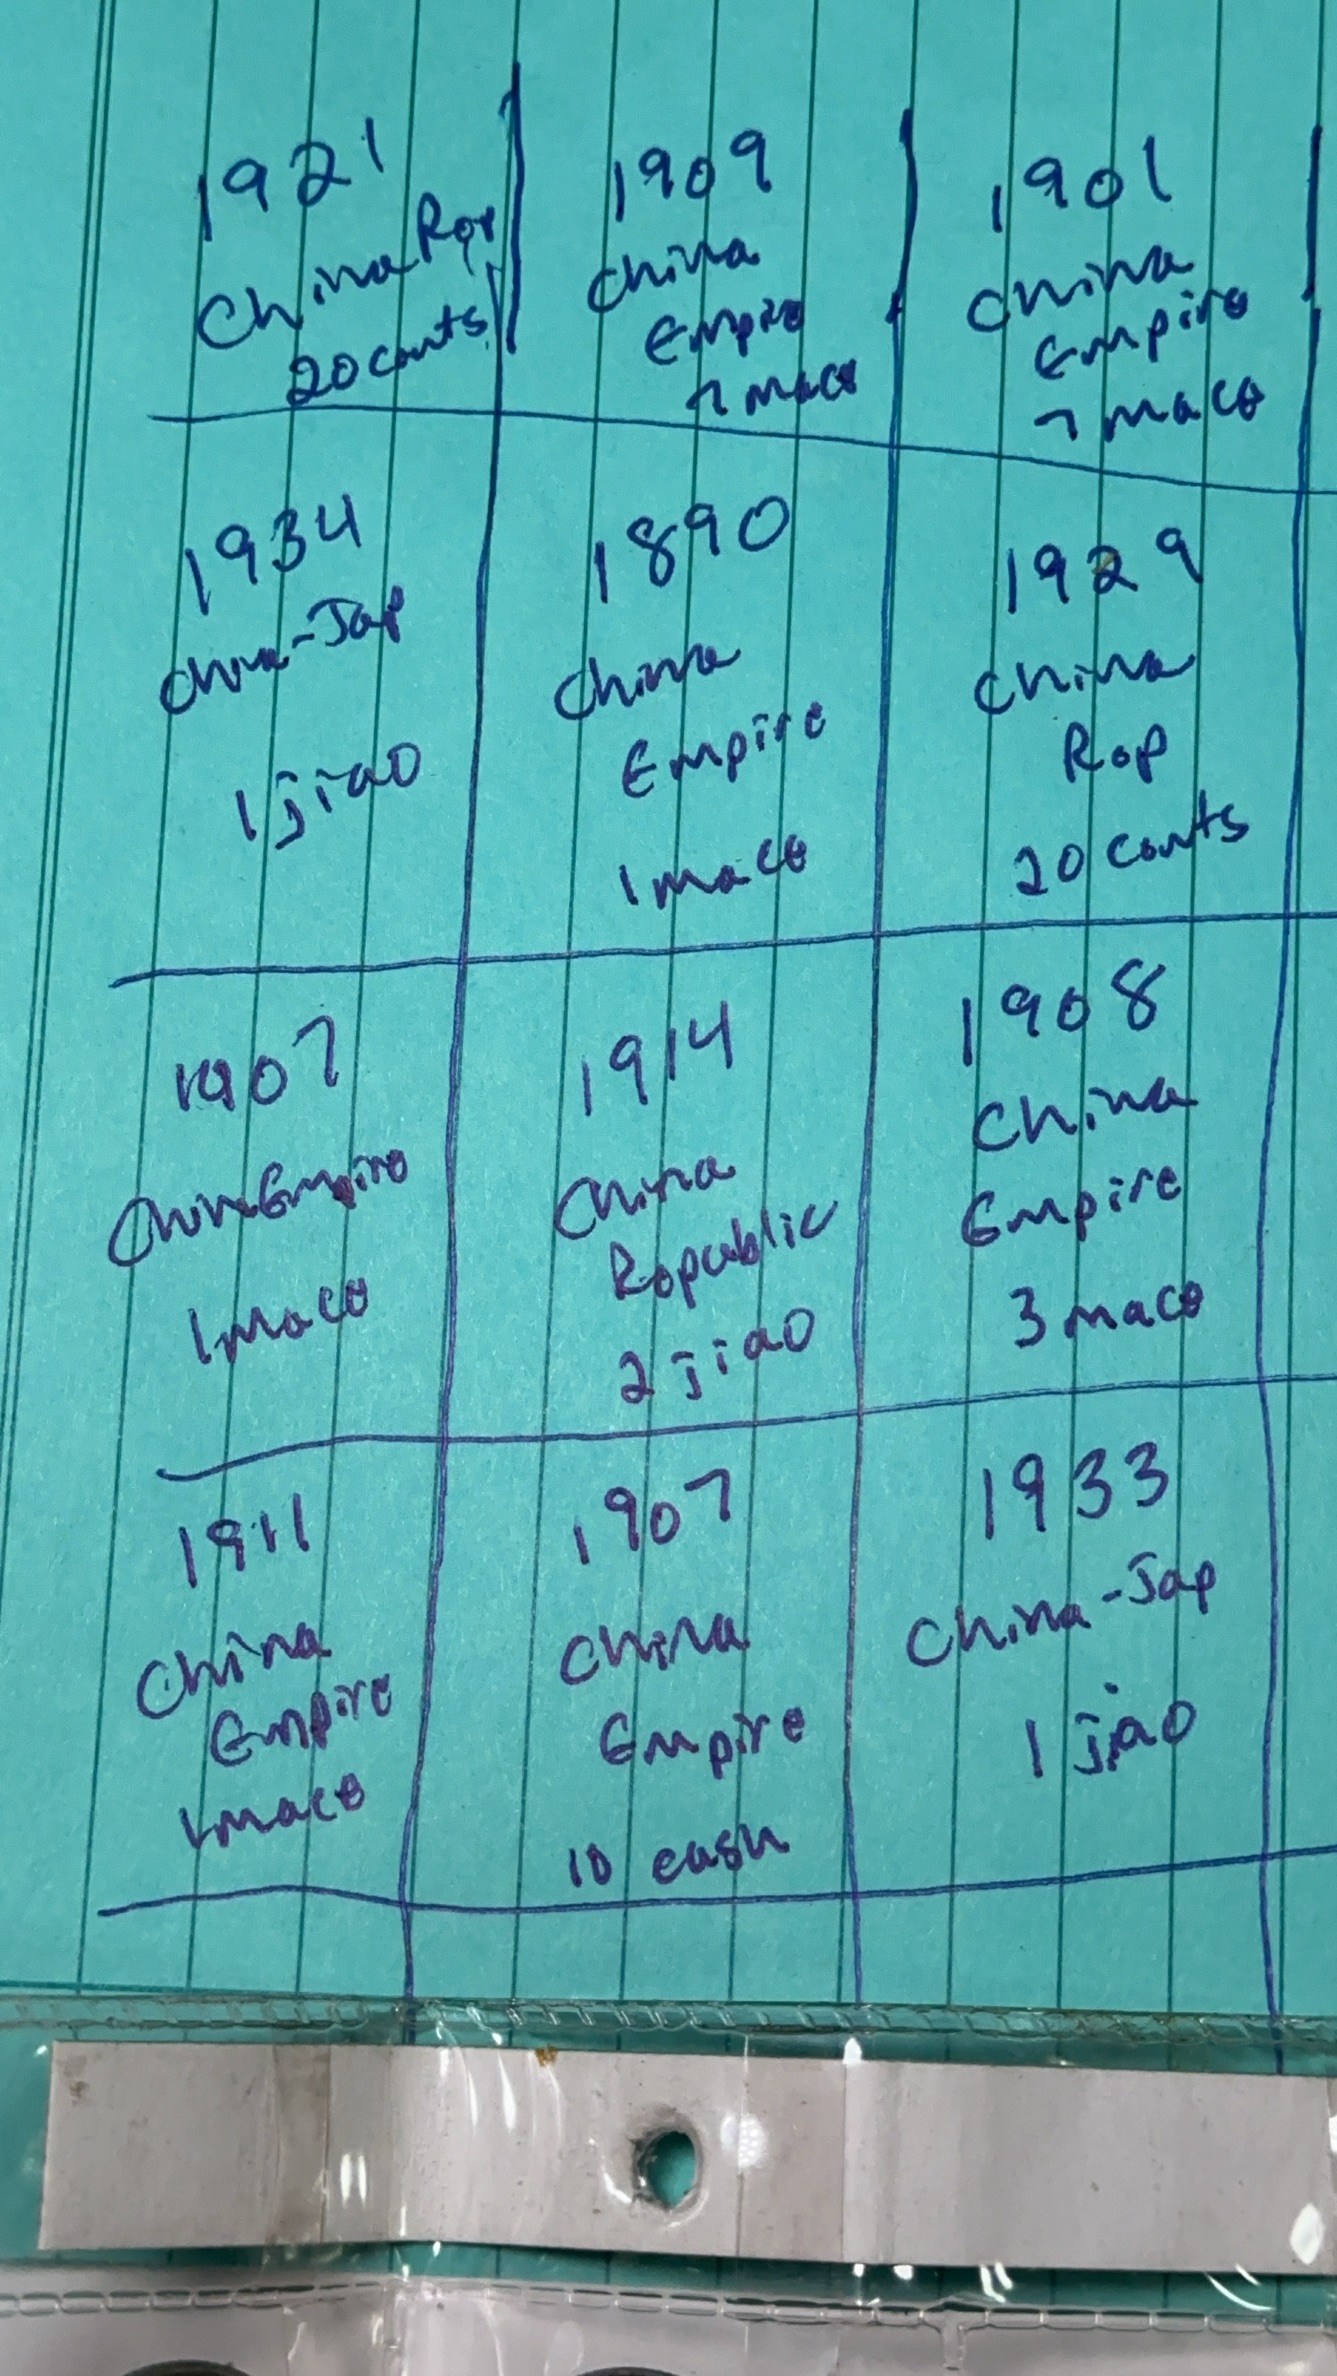 1921
China Rep
20 cents
1909
China
Empire
7 mace
1901
China
Empire
7 mace
1934
China-Jap
1 jiao
1890
China
Empire
1 mace
1929
China
Rep
20 cents
1907
China Empire
1 mace
1914
China
Republic
2 jiao
1908
China
Empire
3 mace
1911
China
Empire
1 mace
1907
China
Empire
10 cash
1933
China-Jap
1 jiao